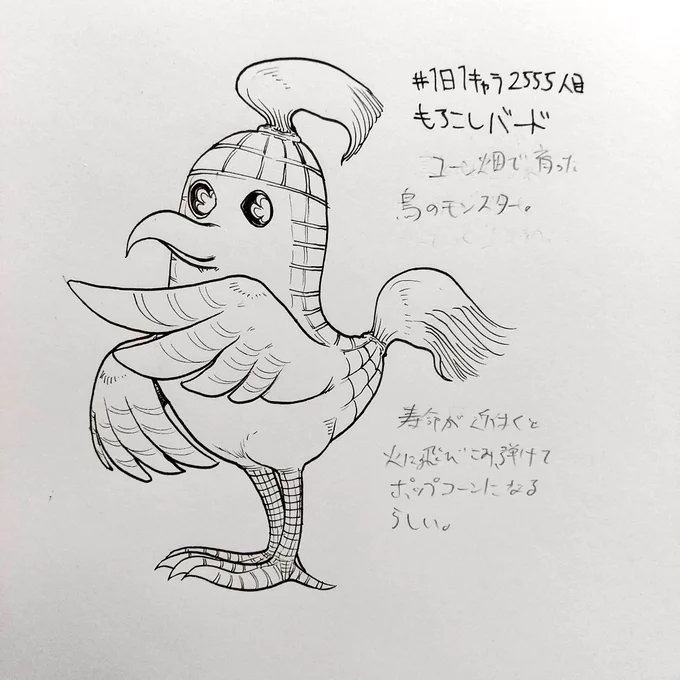 #1日1キャラ2555人目
もろこしバード
コーン畑で育った
鳥のモンスター。
寿命が近付くと
火に飛びこみ弾けて
ポップコーンになる
らしい。